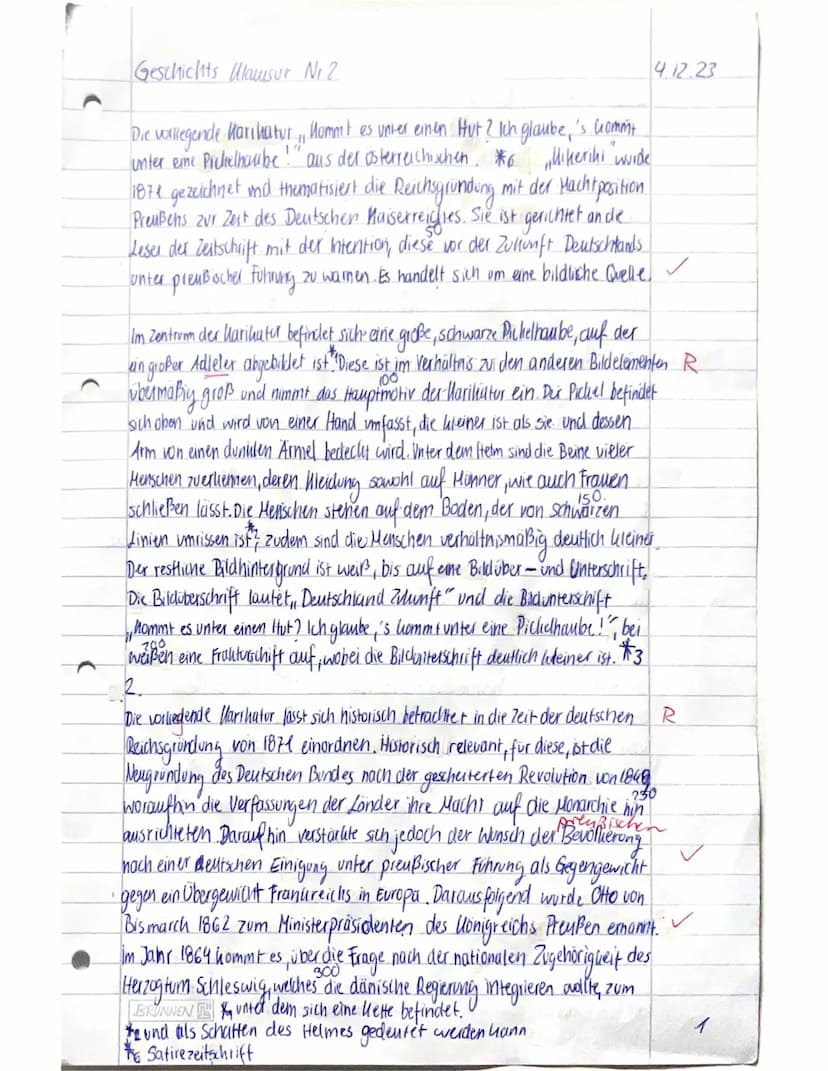 Geschichts Klausur Nr 2 4.12.23
Die vorliegende Karikatur „Kommt es unter einen Hut? Ich glaube, 's kommt
unter eine Pickelhaube!" aus der österreichischen. *6 „Kikeriki" wurde
1871 gezeichnet und thematisiert die Reichsgründung mit der Machtposition
Preußens zur Zeit des Deutschen Kaiserreiches. Sie ist gerichtet an die
50
Leser der Zeitschrift mit der Intention, diese vor der Zukunft Deutschlands
unter preußischer Führung zu warnen. Es handelt sich um eine bildliche Quelle. ✓
Im Zentrum der Karikatur befindet sich eine große, schwarze Pickelhaube, auf der
ein großer Adleler abgebildet ist.* Diese ist im Verhältnis zu den anderen Bildelementen R
100
übermäßig groß und nimmt das Hauptmotiv der Karikatur ein. Der Pickel befindet
sich oben und wird von einer Hand umfasst, die kleiner ist als sie und dessen
Arm von einen dunklen Ärmel bedeckt wird. Unter dem Helm sind die Beine vieler
Menschen zuerkennen, deren Kleidung sowohl auf Männer, wie auch Frauen
150
schließen lässt. Die Menschen stehen auf dem Boden, der von schwarzen
Linien umrissen ist*2, zudem sind die Menschen verhältnismäßig deutlich kleiner.
Der restliche Bildhintergrund ist weiß, bis auf eine Bildüber- und Unterschrift.
Die Bildüberschrift lautet „Deutschland Zukunft" und die Bildunterschift
„Kommt es unter einen Hut? Ich glaube, 's kommt unter eine Pickelhaube!", bei
200
weißen eine Frakturschift auf, wobei die Bildunterschrift deutlich kleiner ist. *3
2.
Die vorliegende Karikatur lässt sich historisch betrachtet in die Zeit der deutschen R
Reichsgründung von 1871 einordnen. Historisch relevant, für diese, ist die
Neugründung des Deutschen Bundes nach der gescheiterten Revolution von 1849
250
woraufhin die Verfassungen der Länder ihre Macht auf die Monarchie hin
preußischen
ausrichteten. Daraufhin verstärkte sich jedoch der Wunsch der Bevölkerung
nach einer deutschen Einigung unter preußischer Führung als Gegengewicht ✓
gegen ein Übergewicht Frankreichs in Europa. Darausfolgend wurde Otto von
Bismarch 1862 zum Ministerpräsidenten des Königreichs Preußen ernannt. ✓
Im Jahr 1864 kommt es, über die Frage nach der nationalen Zugehörigkeit des
300
Herzogtum Schleswig, welches die dänische Regierung integrieren wollte, zum
BRUNNEN *1 unter dem sich eine Kette befindet.
*2 und als Schatten des Helmes gedeutet werden kann 1
*6 Satirezeitschrift